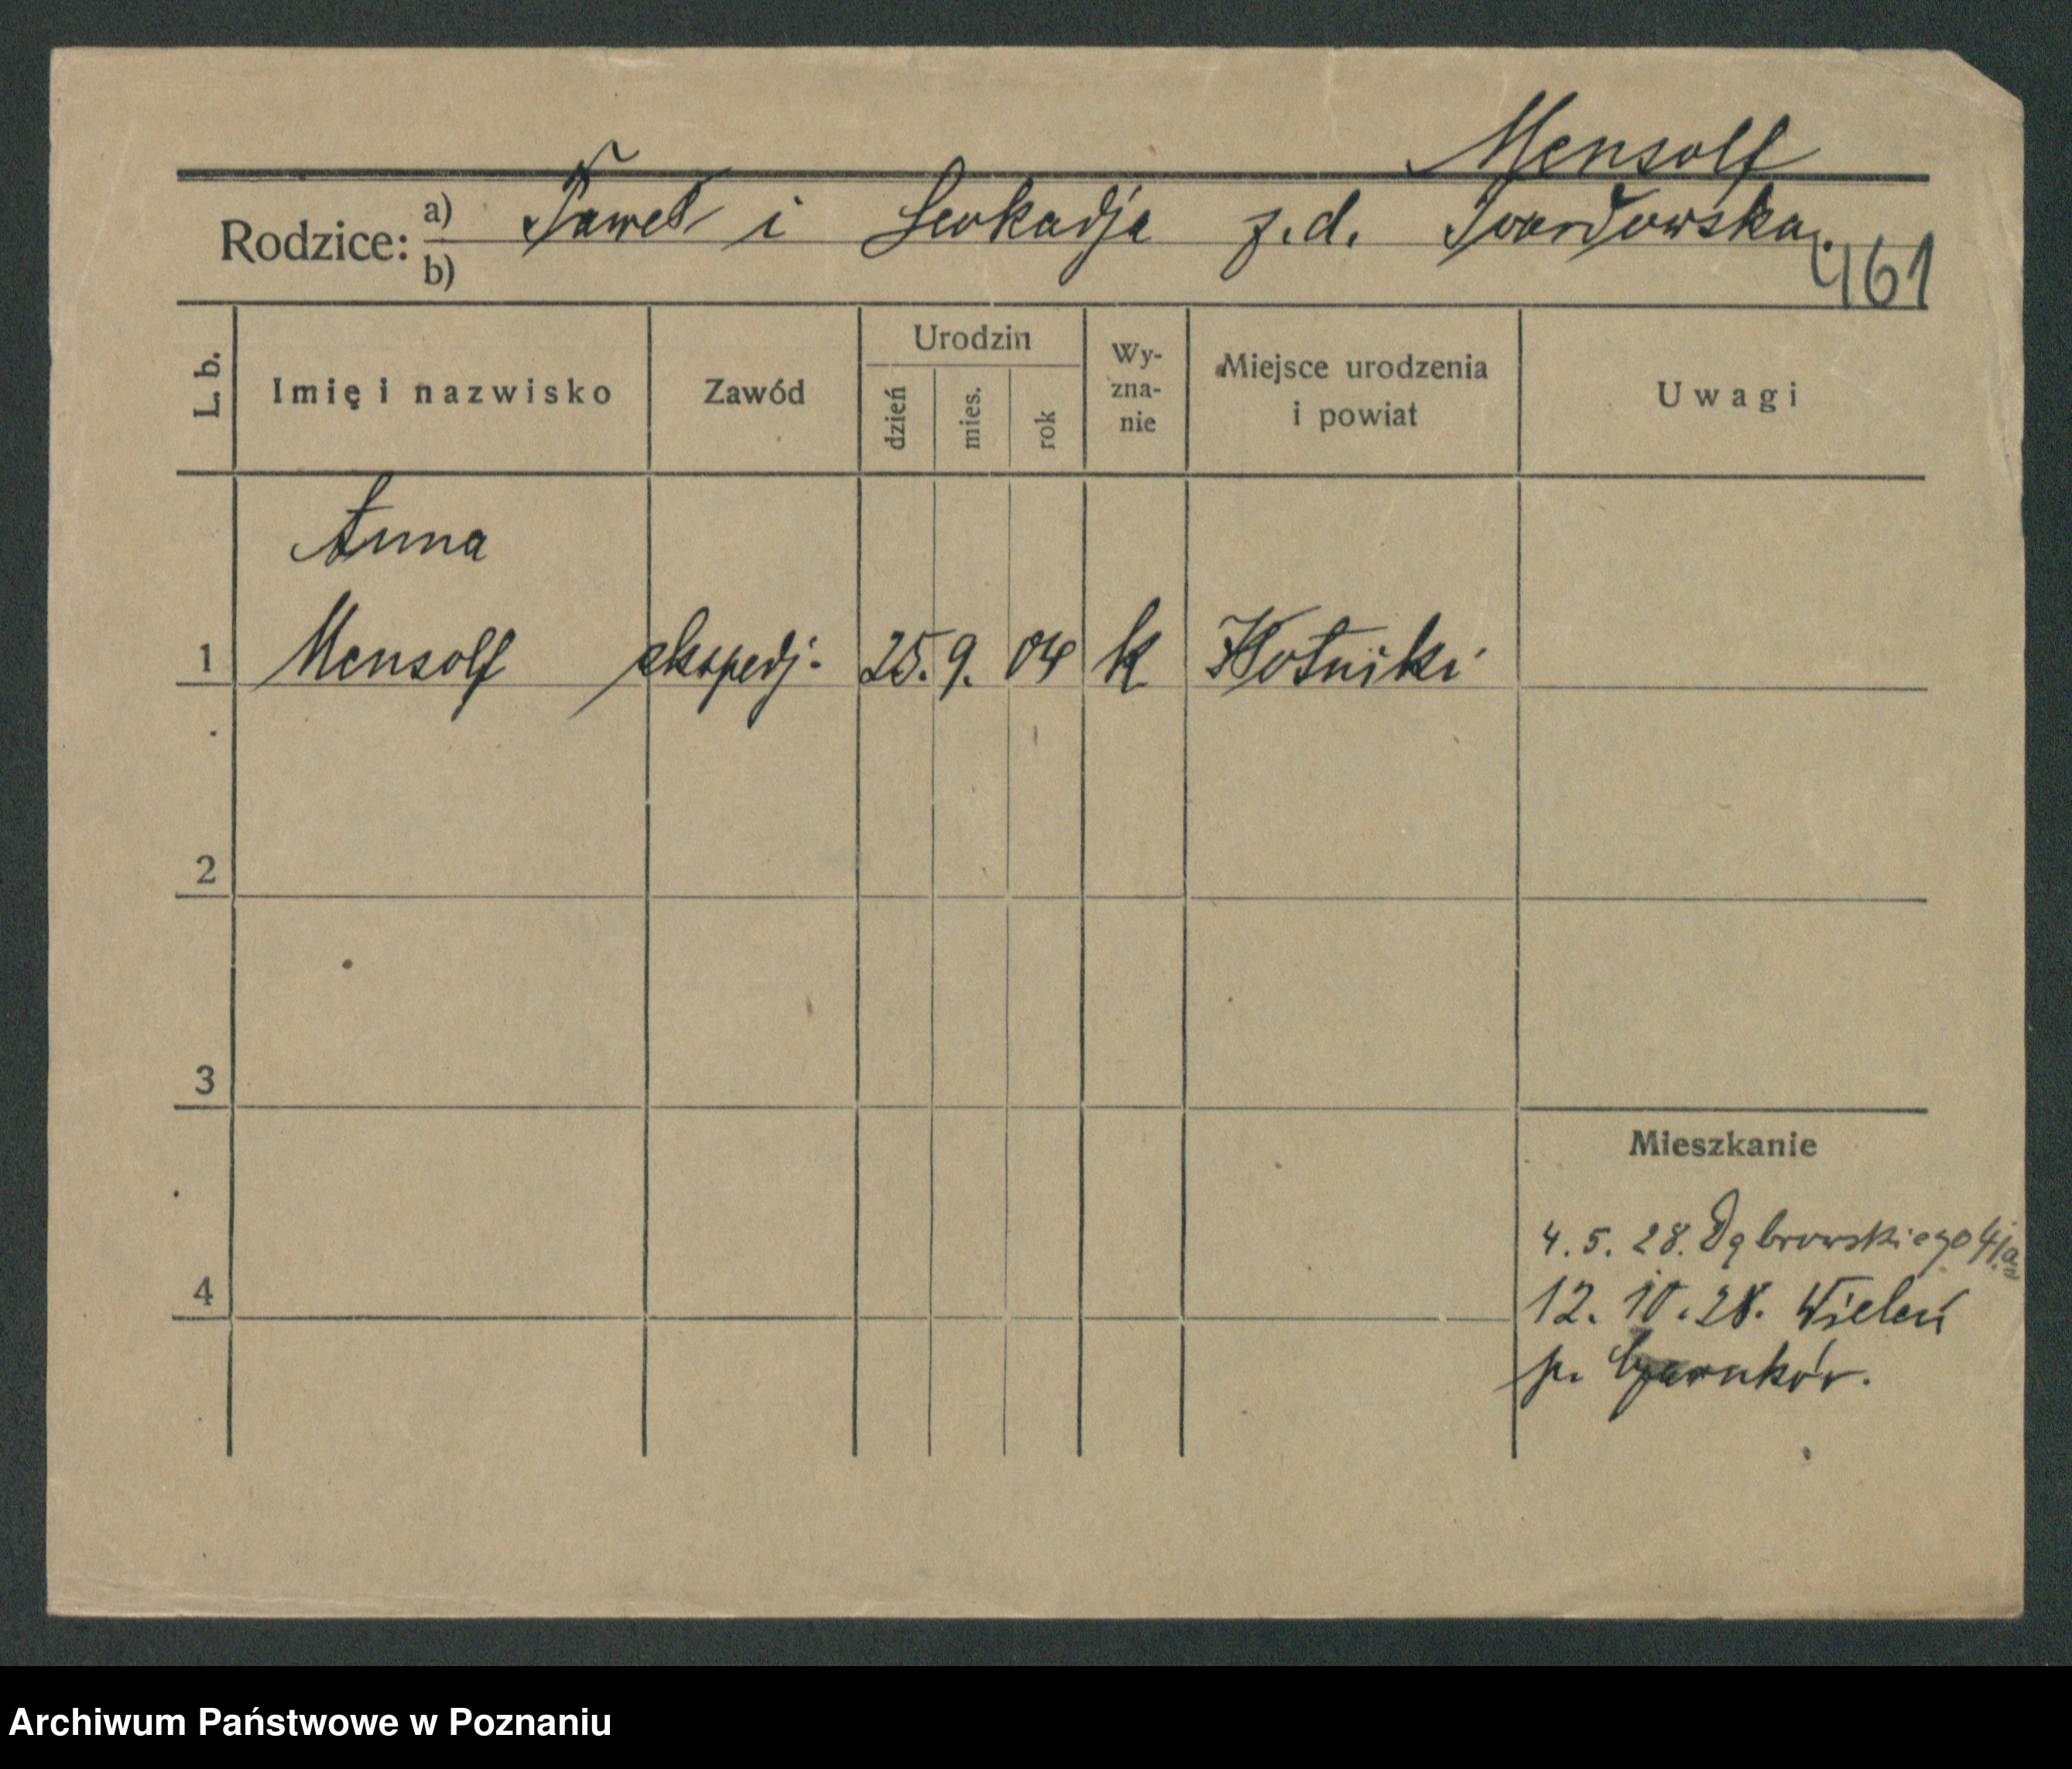 Mensolf
Rodzice: a) Paweł i Leokadja z.d. Twardowska.
b)
461
L. b.
Imię i nazwisko
Zawód
Urodzin
dzień
mies.
rok
Wy-
zna-
nie
Miejsce urodzenia
i powiat
Uwagi
Anna
1 Mensolf ekspedj. 25. 9. 04 k
2
3
Mieszkanie
4. 5. 28. Dąbrowskiego
4
12. 10. 28. Wieleń
p. Czarnków.
Archiwum Państwowe w Poznaniu